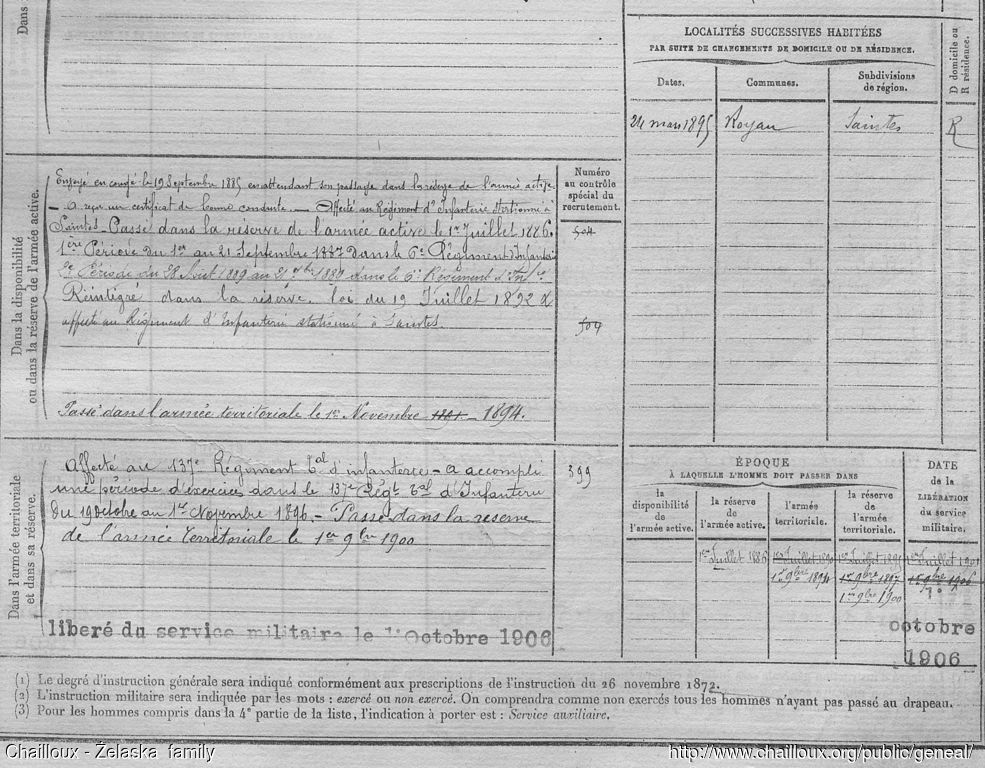 Dans
LOCALITÉS SUCCESSIVES HABITÉES
PAR SUITE DE CHANGEMENTS DE DOMICILE OU DE RÉSIDENCE.
D domicile ou
R résidence.
Dates.
Communes.
Subdivisions
de région.
24 mars 1895
Royan
Saintes
R
Dans la disponibilité
ou dans la réserve de l'armée active.
Numéro
au contrôle
spécial du
recrutement.
Envoyé en congé le 19 Septembre 1885 en attendant son passage dans la réserve de l'armée active
– a reçu un certificat de bonne conduite. – Affecté au Régiment d'Infanterie stationné à
Saintes. Passé dans la réserve de l'armée active le 1er Juillet 1886.
504
1ère Période du 1er au 21 Septembre 1887 dans le 6e Régiment d'Infanterie
2e Période du 28 Août 1889 au 21 7bre 1889 dans le 6e Régiment d'Infie
Réintégré dans la réserve. loi du 19 Juillet 1892 &
affecté au Régiment d'Infanterie stationné à Saintes.
509
Passé dans l'armée territoriale le 1er Novembre 1894.
Dans l'armée territoriale
et dans sa réserve.
Affecté au 137e Régiment tal d'infanterie – a accompli
399
une période d'exercices dans le 137e Régt tal d'Infanterie
du 19 Octobre au 1er Novembre 1896. – Passé dans la réserve
de l'armée territoriale le 1er 9bre 1900
libéré du service militaire le 1er Octobre 1906
ÉPOQUE
À LAQUELLE L'HOMME DOIT PASSER DANS
DATE
DE LA
LIBÉRATION
du service
militaire.
la
disponibilité
de
l'armée active.
la réserve
de
l'armée active.
l'armée
territoriale.
la réserve
de
l'armée
territoriale.
1er Juillet 1886
1er Juillet
1er Juillet
1er Juillet
1er 9bre 1894
1er 9bre 1897
1er 9bre 1906
1er 9bre 1900
octobre
1906
(1) Le degré d'instruction générale sera indiqué conformément aux prescriptions de l'instruction du 26 novembre 1872.
(2) L'instruction militaire sera indiquée par les mots : exercé ou non exercé. On comprendra comme non exercés tous les hommes n'ayant pas passé au drapeau.
(3) Pour les hommes compris dans la 4e partie de la liste, l'indication à porter est : Service auxiliaire.
Chailloux - Żelaska family
http://www.chailloux.org/public/geneal/